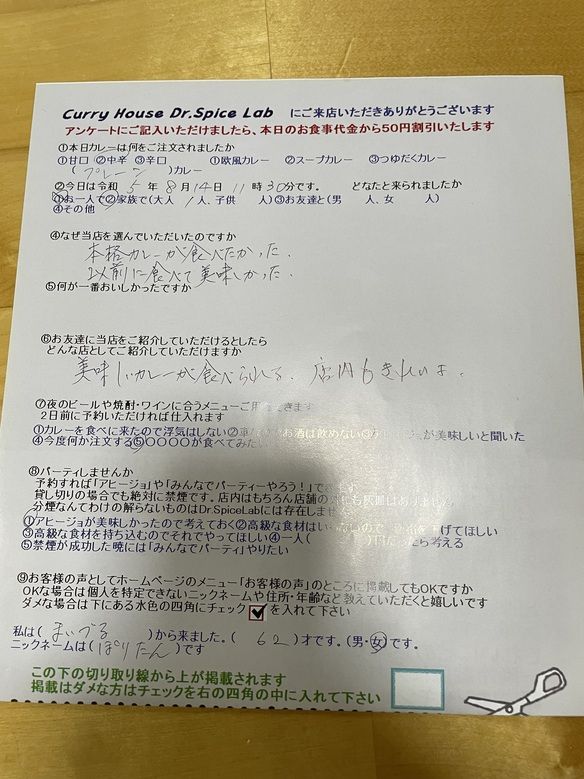 Curry House Dr.Spice Lab にご来店いただきありがとうございます
アンケートにご記入いただけましたら、本日のお食事代金から50円割引いたします
①本日カレーは何をご注文されましたか
①甘口 ②中辛 ③辛口 ①欧風カレー ②スープカレー ③つゆだくカレー
(プレーン)カレー
②今日は令和 5年 8月14日 11時30分です。 どなたと来られましたか
①お一人で②家族で(大人 1人、子供 人)③お友達と(男 人、女 人)
④その他
④なぜ当店を選んでいただいたのですか
本格カレーが食べたかった.
以前に食べて美味しかった.
⑤何が一番おいしかったですか
⑥お友達に当店をご紹介していただけるとしたら
どんな店としてご紹介していただけますか
美味しいカレーが食べられる、店内もきれいよ.
⑦夜のビールや焼酎・ワインに合うメニューご用意できます
2日前に予約いただければ仕入れます
①カレーを食べに来たので浮気はしない②車 お酒は飲めない③ が美味しいと聞いた
④今度何か注文する⑤〇〇〇〇が食べてみたい
⑧パーティしませんか
予約すれば「アヒージョ」や「みんなでパーティーやろう!」で
貸し切りの場合でも絶対に禁煙です。店内はもちろん店舗の
分煙なんてわけの解らないものはDr.SpiceLabには存在しませ
①アヒージョが美味しかったので考えておく②高級な食材はい ないので げてほしい
③高級な食材を持ち込むのでそれでやってほしい④一人( )円だったら考える
⑤禁煙が成功した暁には「みんなでパーティ」やりたい
⑨お客様の声としてホームページのメニュー「お客様の声」のところに掲載してもOKですか
OKな場合は個人を特定できないニックネームや住所・年齢など教えていただくと嬉しいです
ダメな場合は下にある水色の四角にチェック を入れて下さい
私は(まいづる)から来ました。(62)才です。(男・女)です。
ニックネームは(ぱりたん)です
この下の切り取り線から上が掲載されます
掲載はダメな方はチェックを右の四角の中に入れて下さい